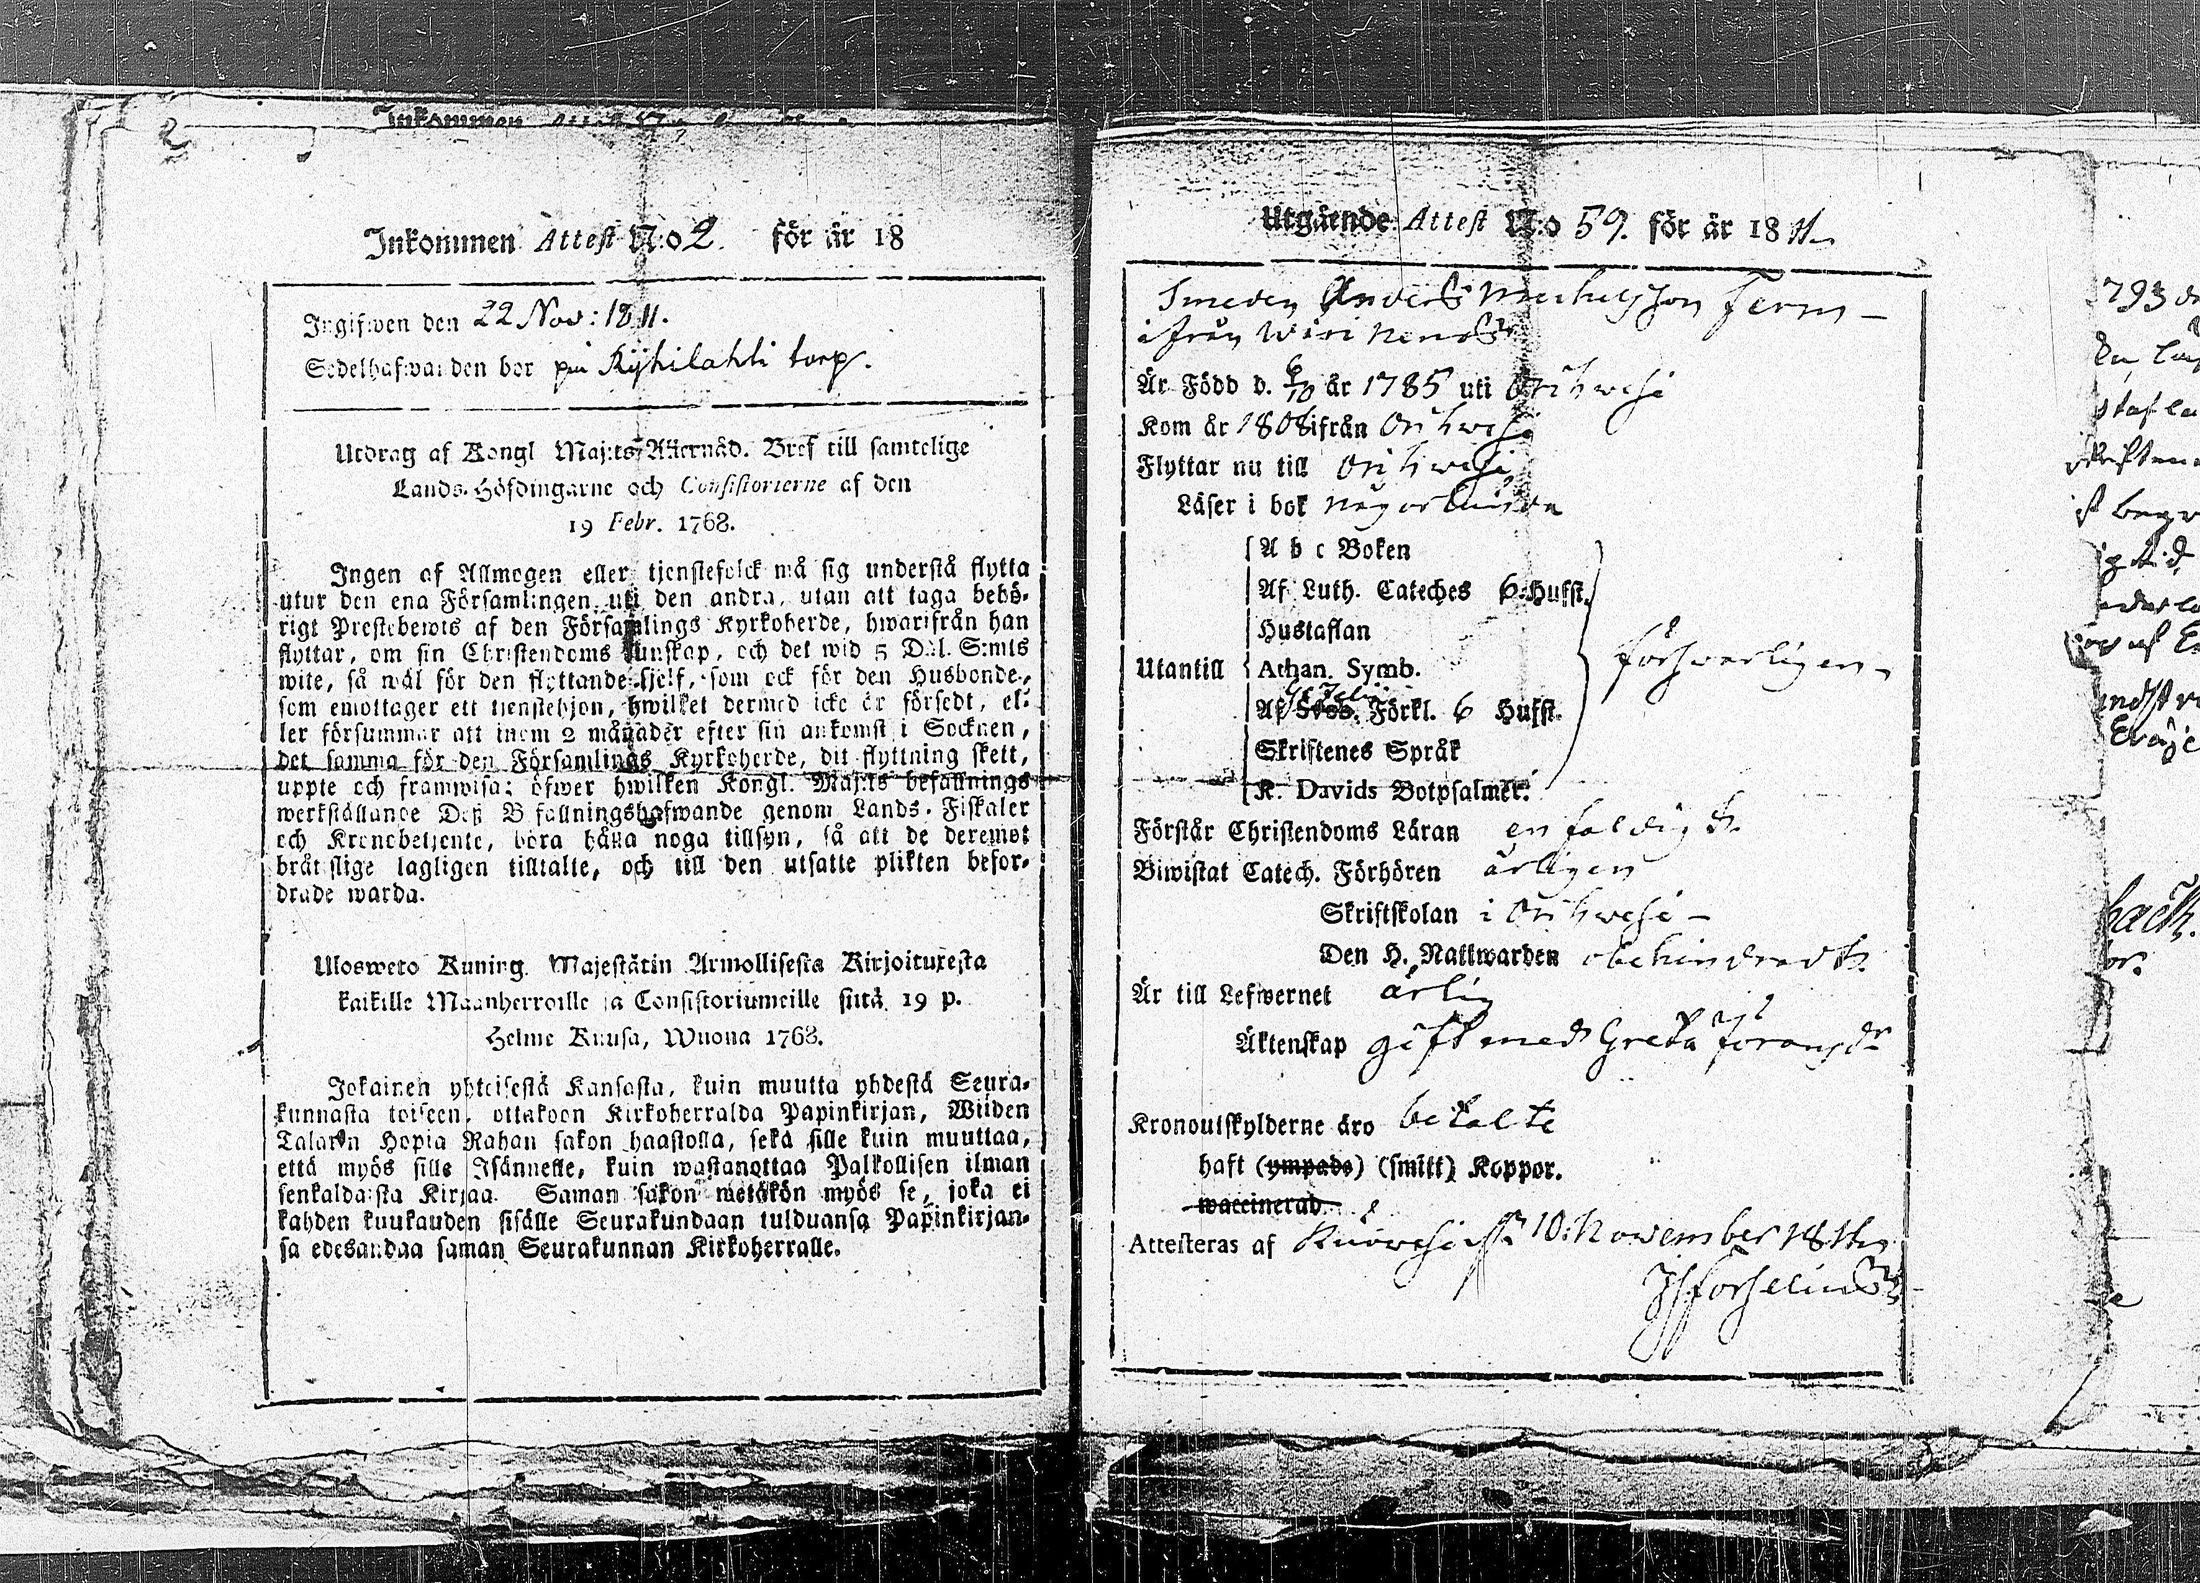 Inkommen Attest N:o 2. för år 18
Ingifwen den 22 Nov: 1811.
Sedelhafwanden bor på Kyhilahti torp.
Utdrag af Kongl Maj:ts Allernåd. Bref till samtelige
Lands-Höfdingarne och Consistorierne af den
19 Febr. 1768.
Ingen af Allmogen eller tjenstefolck må sig understå flytta
utur den ena Församlingen uti den andra, utan att taga behö-
rigt Prestebewis af den Församlings Kyrkoherde, hwarifrån han
flyttar, om sin Christendoms kunskap, och det wid 5 Dal. S:mts
wite, så wäl för den flyttande sjelf, som ock för den Husbonde,
som emottager ett tjenstehjon, hwilket dermed icke är försedt, el-
ler försummar att inom 2 månader efter sin ankomst i Socknen,
det samma för den Församlings Kyrkoherde, dit flyttning skett,
uppte och framwisa; öfwer hwilken Kongl. Maj:ts befallnings
werkställande Deß B fallningshafwande genom Lands-Fiskaler
och Kronobetjente, böra hålla noga tillsyn, så att de deremot
bråtslige lagligen tilltalte, och till den utsatte plikten befor-
drade warda.
Ulosweto Kuning. Majestätin Armollisesta Kirjoituxesta
kaikille Maanherroille ja Consistoriumeille siitä 19 p.
Helme Kuusa, Wuona 1768.
Jokainen yhteisestä Kansasta, kuin muutta yhdestä Seura-
kunnasta toiseen, ottakoon Kirkoherralda Papinkirjan, Wiiden
Talarin Hopia Rahan sakon haastolla, sekä sille kuin muuttaa,
että myös sille Isännelle, kuin wastanottaa Palkollisen ilman
senkaldaista Kirjaa. Saman sakon wetäkön myös se, joka ei
kahden kuukauden sisälle Seurakundaan tulduansa Papinkirjan-
sa edesandaa saman Seurakunnan Kirkoherralle.
Utgående Attest N:o 59. för år 1811.
Smeden Anders Michelsson Ferm
ifrån
Är Född d. 6/10 år 1785 uti Orihwesi
Kom år 1808 ifrån Orihwesi
Flyttar nu till Orihwesi
Läser i bok någorlunda
A b c Boken
Af Luth. Cateches 6 Hufst.
Hustaflan
Utantill Athan. Symb. förswarligen
Af Sveb. Förkl. 6 Hufst.
Skriftenes Språk
K. Davids Botpsalmer.
Förstår Christendoms Läran enfaldigt
Biwistat Catech. Förhören årligen
Skriftskolan i Orihwesi
Den H. Nattwarden obehindradt
Är till Lefwernet ärlig
Äktenskap gift med Greta
Kronoutskylderne äro betalte
haft (ympade) (smitt) Koppor.
waccinerad
Attesteras af Ruowesi d. 10: November 1811